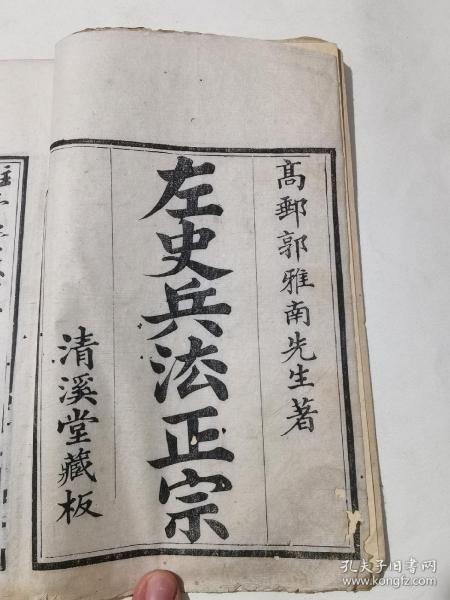 高郵郭雅南先生著
左史兵法正宗
清溪堂藏板
孔夫子旧书网
www.kongfz.com